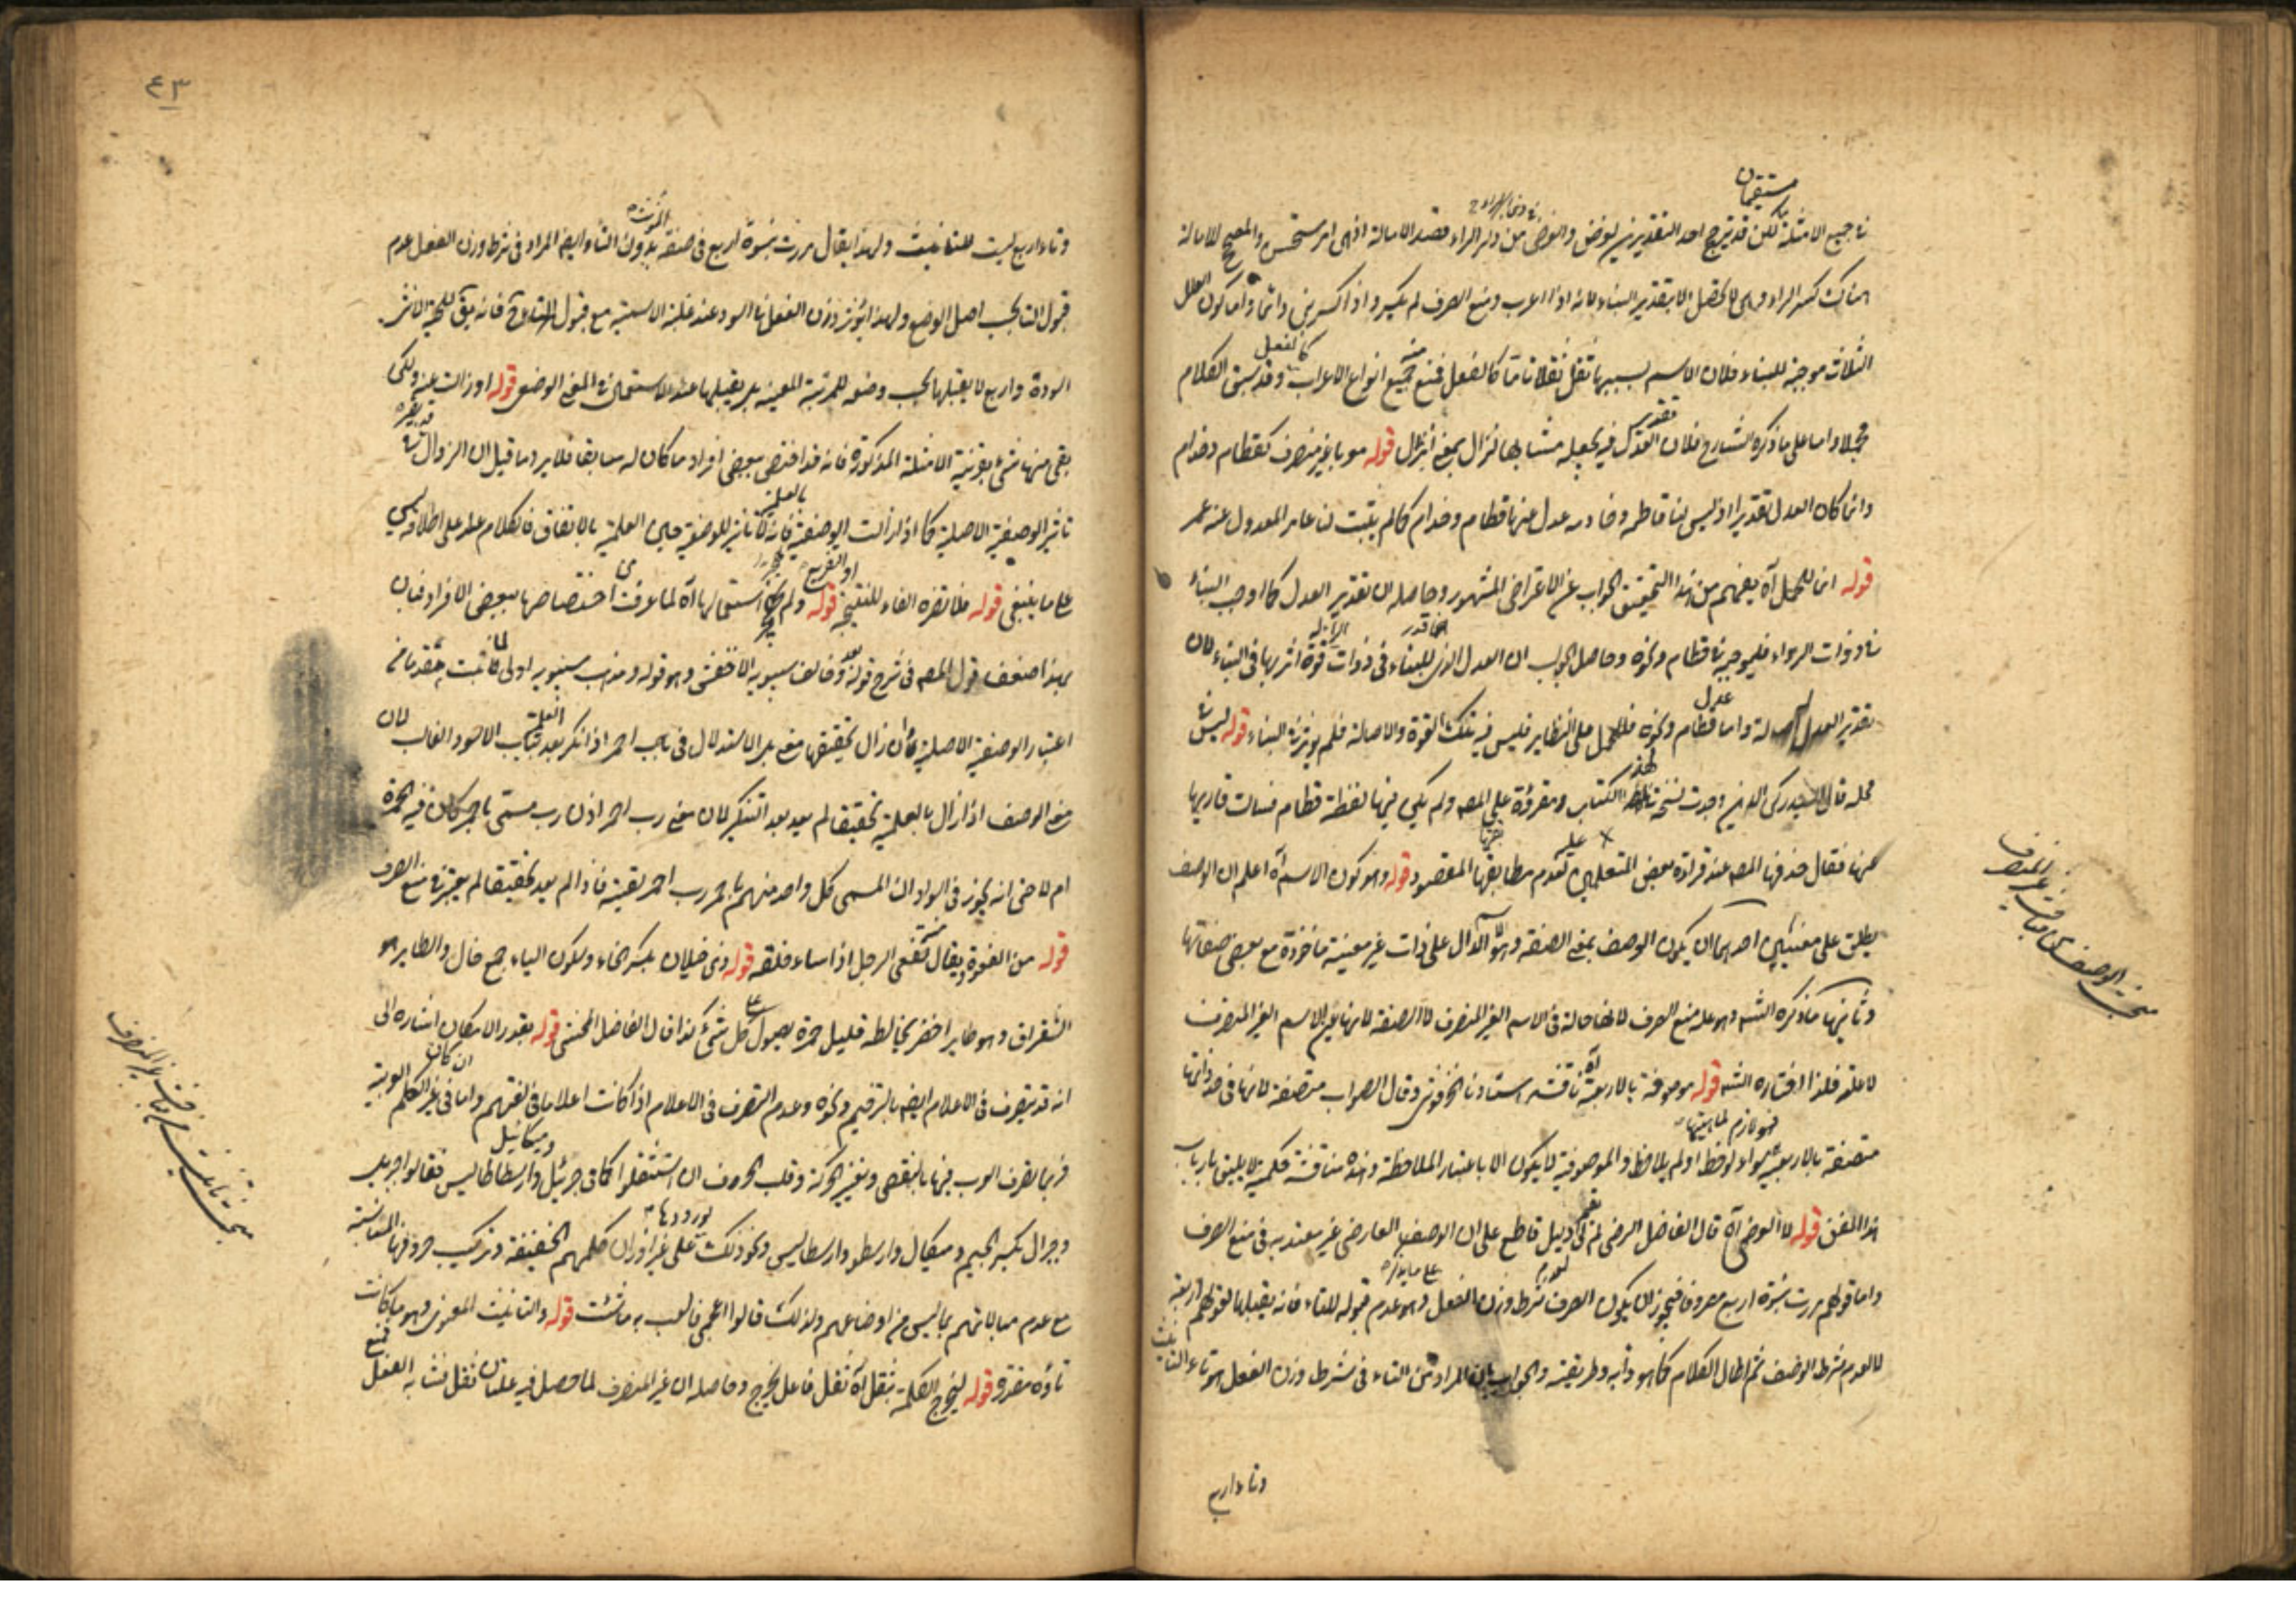 مستقيمان
في جميع الامثلة لكن قد يترجح احد التقديرين لغرض والغرض من ذوات الراء قصد الامالة اذ هي امر مستحسن والمصحح للامالة
هناك كسر الراء وهي لا تحصل الا بتقدير البناء لانه اذا اعرب ومنع الصرف لم يكسر واذا كسر بني دائما واما كون العلل
الثلاث موجبة للبناء فلان الاسم بسببها ثقل ثقلا تاما كالفعل فمنع منه جميع انواع الاعراب كالفعل وقد سبق الكلام
مجملا واما على ما ذكره الشارح فلان تقدير العدل فيه يجعله مشابها لنزال بمعنى انزل قوله معربا غير منصرف كقطام وحذام
وانما كان العدل تقديرا اذ ليس لنا قاطمة وحاذمة عدل عنها قطام وحذام كما لم يثبت لنا عامر المعدول عنه عمر
قوله انما للحمل آه يفهم من هذا التحقيق الجواب عن الاعتراض المشهور وحاصله ان تقدير العدل كما اوجب البناء
في ذوات الراء فليوجبه في قطام ونحوه وحاصل الجواب ان العدل الذي قدر للبناء في ذوات الراء له قوة اثر بها في البناء لان
تقدير العدل له واما عدل قطام ونحوه فللحمل على النظاير فليس فيه تلك القوة والاصالة فلم يؤثر في البناء قوله ليس في
محله قال السيد ركن الدين وجدت نسخة لهذا الكتاب ومقروة على المص ولم يكن فيها لفظة قطام فسالت قاريها
عنها فقال حذفها المص عند قراءة بعض المتعلمين عليه لعدم مطابقتها المقصود قوله وهو كون الاسم آه اعلم ان الوصف
يطلق على معنيين احدهما ان يكون الوصف بمعنى الصفة وهو الدال على ذات غير معينة ماخوذة مع بعض صفاتها
وثانيهما ما ذكره الش وهو علة منع الصرف لانها حالة في الاسم الغير المنصرف لا الصفة لانها عين الاسم الغير المنصرف
لا علته فلذا اختاره الش قوله موصوفة بالاربعة آه ناقشه استادنا وقال الصواب متصفة لانها في حد ذاتها
متصفة بالاربعية سواء لوحظ او لم يلاحظ فهو لازم لماهيتها والموصوفية لا يكون الا باعتبار الملاحظة وهذه مناقشة حكمية لا يليق بارباب
هذا الفن قوله لا الوضعي آه قال الفاضل الرضي لم يقم لي دليل قاطع على ان الوصف العارض غير معتد به في منع الصرف
واما قولهم مررت بنسوة اربع مصروفا فيجوز ان يكون الصرف لعدم شرط وزن الفعل على ما يذكره وهو عدم قبوله للتاء فانه يقبلها لقولهم اربعة
لا لعدم شرط الوصف ثم اطال الكلام كما هو دأبه وطريقته والجواب بان المراد من التاء في شرط وزن الفعل هو تاء التانيث
وتاء اربع
مبحث الوصف من غير المنصرف
٤٣
وتاء اربع ليست للتانيث ولهذا يقال مررت بنسوة اربع في صفة المؤنث بدون التاء وايضا المراد في شرط وزن الفعل عدم
قبول التاء بحسب اصل الوضع ولهذا يؤثر وزن الفعل في اسود عند غلبة الاسمية مع قبول التاء ح فانه يق للحية الانثى
اسودة واربع لا يقبلها بحسب وضعه للمرتبة المعينة بل يقبلها عند الاستعمال في المعنى الوضعي قوله او زالت عنه ولكن
بقى منها شيء بقرينة الامثلة المذكورة فانه قد اقتضى بعض افراد ما كان له سابقا فلا يرد ما قيل ان الزوال
تاثير الوصفية الاصلية كما اذا زالت الوصفية بالعلمية فانه لا تاثير للوصفية حين العلمية بالاتفاق فالكلام على اطلاقه ليس
على ما ينبغي قوله فلا تضره الفاء للنتيجة او التفريع قوله ولم يجز استعمالها آه لما عرفت من اختصاصها ببعض الافراد فبان
بهذا ضعف قول المص في شرح قوله وخالف سيبويه الاخفش وهو قوله ومذهب سيبويه اولى لما ثبت تقدمه في
اعتبار الوصفية الاصلية وان زال تحقيقها معنى بل الاستدلال في باب احمر اذا نكر بعد العلمية بباب الاسود الغالب لان
معنى الوصف اذا زال بالعلمية تحقيقا لم يعد بعد التنكير لان معنى رب احمر اذن رب مسمى باحمر كان فيه الحمرة
ام لا حتى انه يجوز في السودان المسمى كل واحد منهم باحمر رب احمر لقيته فاذا لم يعد تحقيقا لم يعتبر في منع الصرف
قوله من الفعوة ويقال تفعى الرجل اذا ساء خلقه قوله ذي خيلان بكسر الخاء وسكون الياء جمع خال والطاير هو
الشقراق وهو طاير اخضر يخالطه قليل حمرة يصول على كل شيء كذا قال الفاضل المحشي قوله بقدر الامكان اشارة الى
انه قد يتصرف في الاعلام ايضا بالترخيم ونحوه وعدم التصرف في الاعلام اذا كانت اعلاما في لغتهم واما ان كان في غير الكلم العربية
فربما تصرف العرب فيها بالنقص وتغيير الحركة وقلب الحروف ان استثقلوا كما في جبرئيل وميكائيل وارسطاطاليس فقالوا جبريل
وجبرال بكسر الجيم وميكال وارسطو وارسطاليس ونحو ذلك لورودها على غير اوزان كلمهم الخفيفة وتركيب حروفها المتناسبة
مع عدم مبالاتهم بما ليس من اوضاعهم ولذلك قالوا اعجمي فالعب به ما شئت قوله والتانيث المعنوي وهو ما كانت
تاؤه مقدرة قوله ليخرج الكلمة بثقل آه ثقل فاعل يخرج وحاصله ان غير المنصرف لما حصل فيه علتان ثقل فشابه الفعل فمنع
مبحث تانيث من غير المنصرف